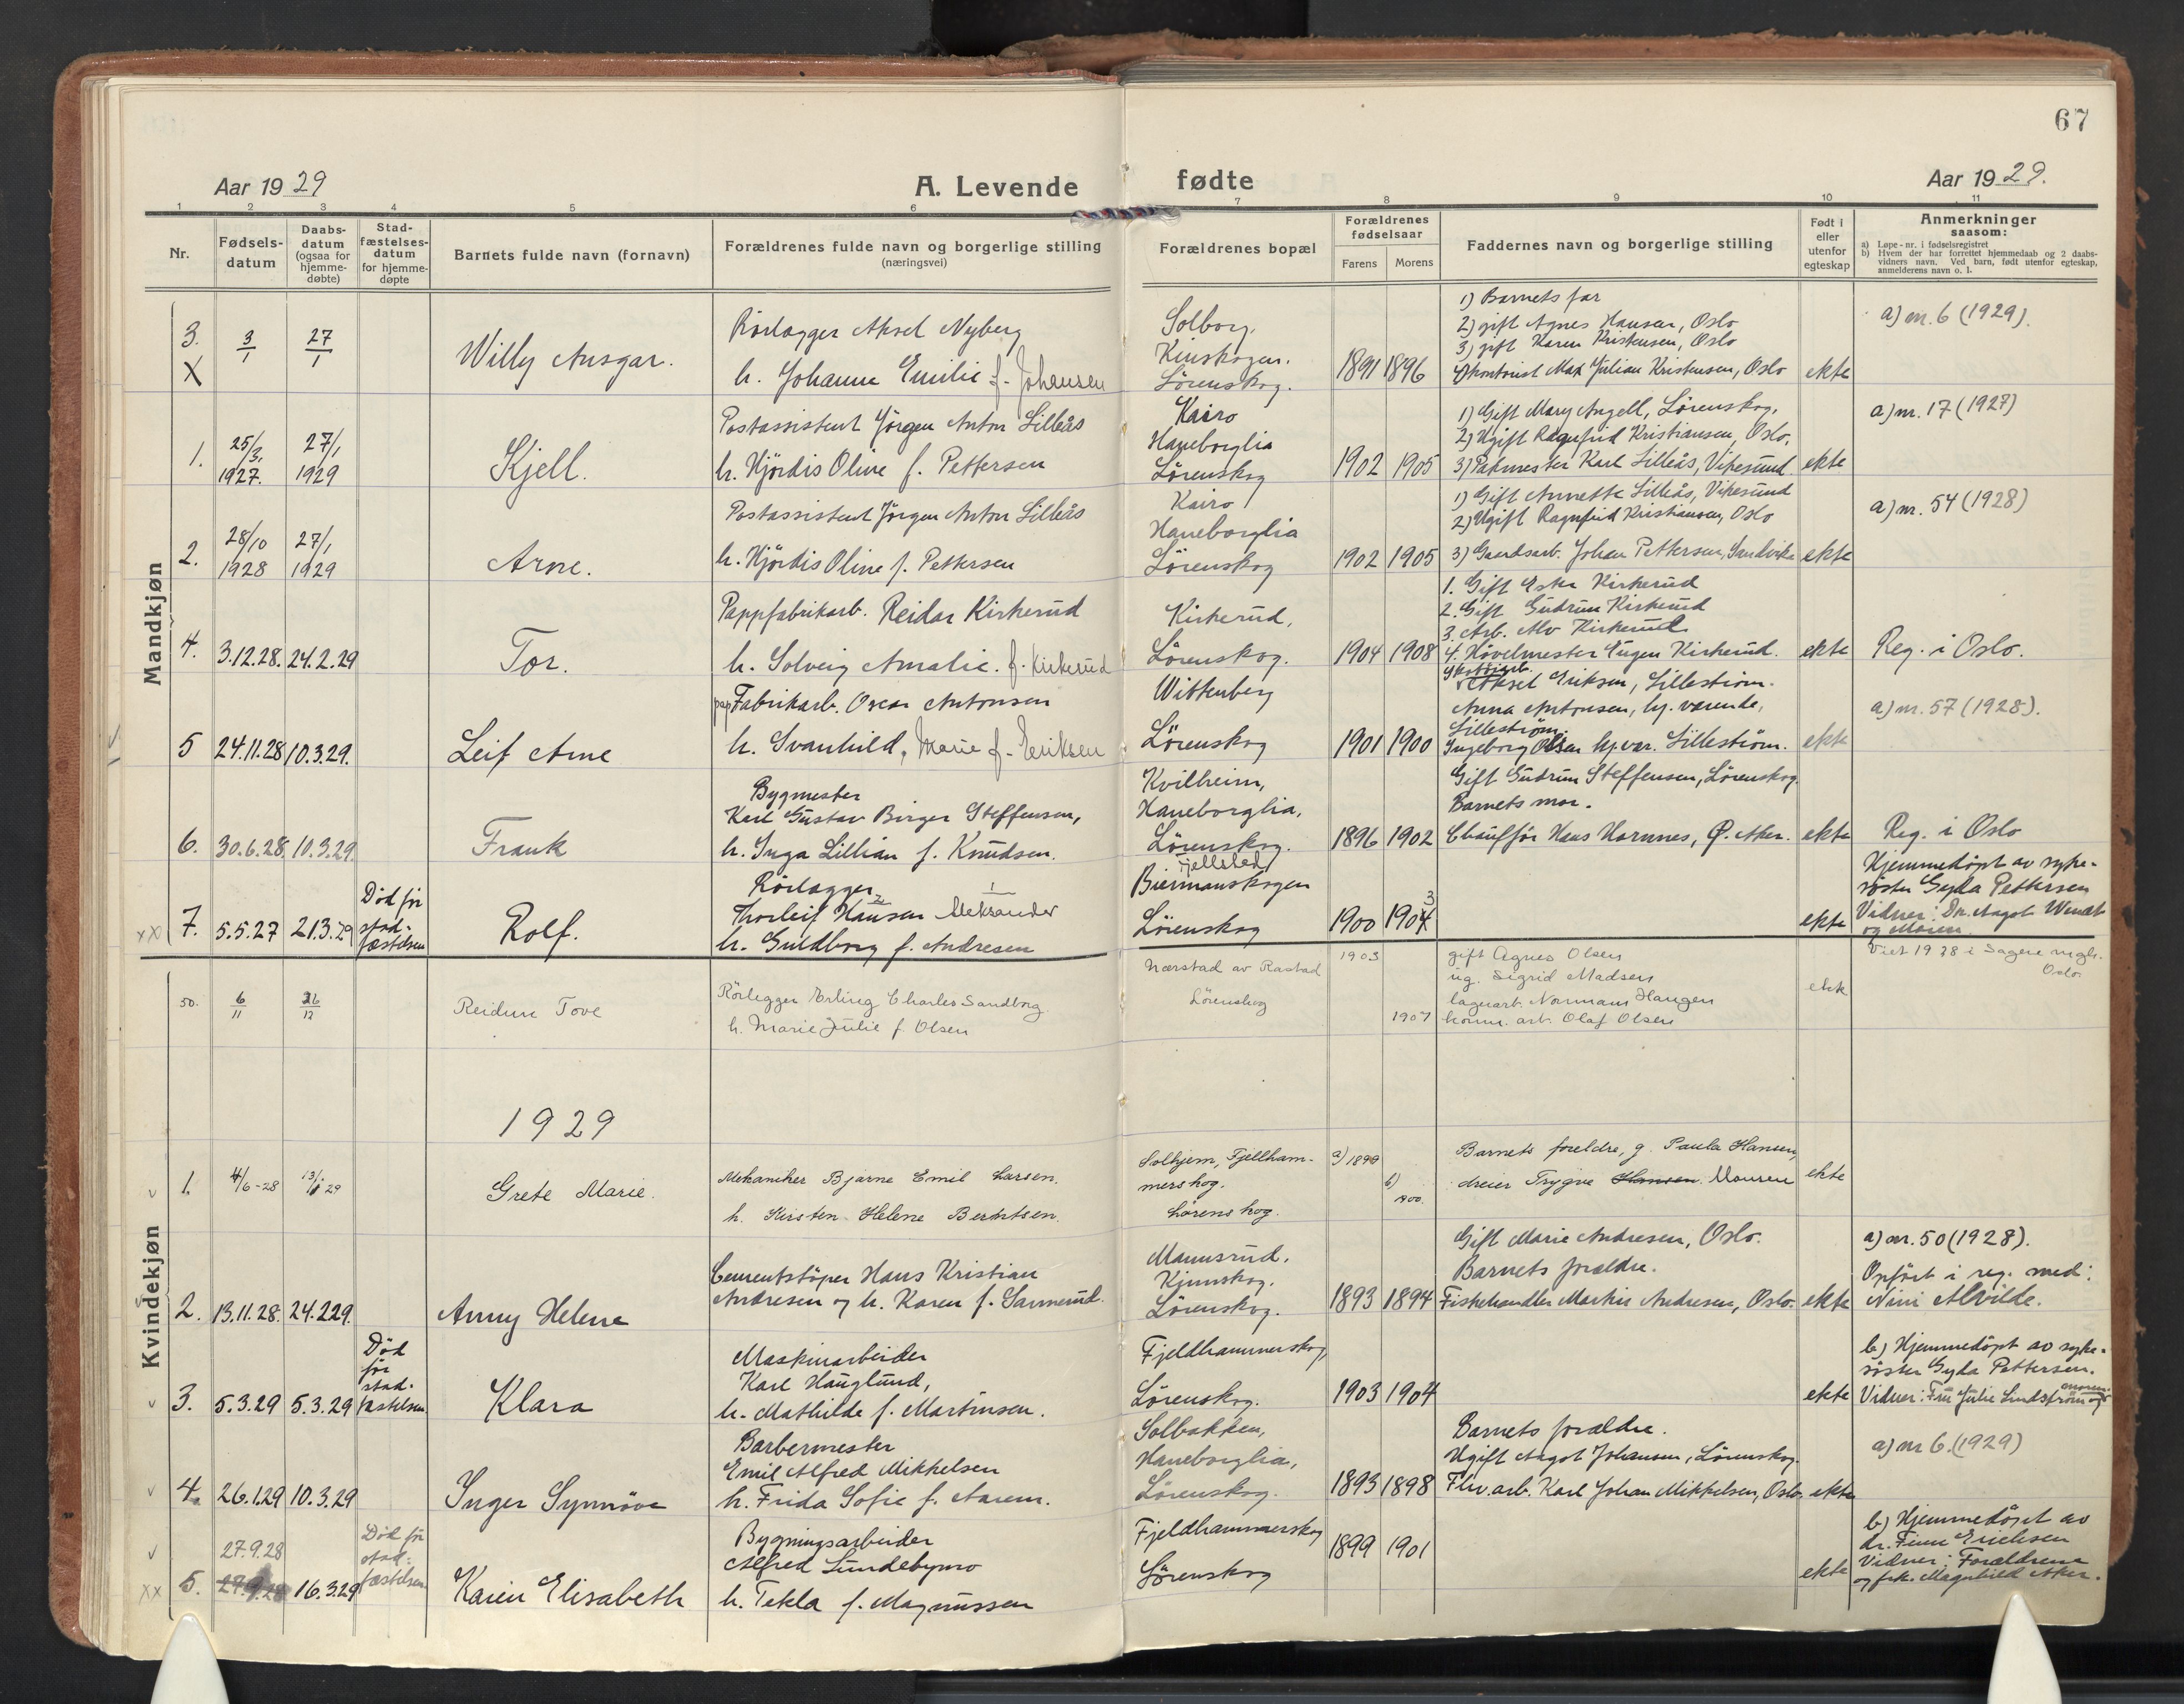 67
Aar 1929
A. Levende fødte
Aar 1929.
1 2 3 4 5 6 7 8 9 10 11
Nr.
Fødsels-
datum
Daabs-
datum
(ogsaa for
hjemme-
døbte)
Stad-
fæstelses-
datum
for hjemme-
døpte
Barnets fulde navn (fornavn)
Forældrenes fulde navn og borgerlige stilling
(næringsvei)
Forældrenes bopæl
Forældrenes
fødselsaar
Farens Morens
Faddernes navn og borgerlige stilling
Født i
eller
utenfor
egteskap
Anmerkninger
saasom:
a) Løpe-nr. i fødselsregistret
b) Hvem der har forrettet hjemmedaab og 2 daabs-
vidners navn. Ved barn, født utenfor egteskap,
anmelderens navn o. l.
Mandkjøn
3.
X
3/1
27/1
Willy Ansgar.
Rörlægger Aksel Nyberg
h. Johanne Emilie f. Johansen
Solborg.
Lörenskog.
1891 1896
1) Barnets far
2) gift Agnes Hansen, Oslo
3) gift Karen Kristensen, Oslo
4) kontorist Max Julian Kristensen, Oslo
ekte
a) nr. 6 (1929).
1.
25/3.
1927.
27/1
1929
Kjell.
Postassistent Jörgen Anton Lilleås
h. Hjördis Oline f. Pettersen
Kairo
Haneborglia
Lörenskog
1902 1905
1) Gift Mary Angell, Lörenskog.
2) Ugift Ragnfrid Kristiansen, Oslo,
3) Pakmester Karl Lilleås, Vikesund
ekte
a) nr. 17 (1927)
2.
28/10
1928
27/1
1929
Arne.
Postassistent Jörgen Anton Lilleås
h. Hjördis Oline f. Pettersen
Kairo
Haneborglia
Lörenskog
1902 1905
1) Gift Annette Lilleås, Vikesund
2) Ugift Ragnfrid Kristiansen, Oslo
3) Gaardsarb. Johan Pettersen, Sandvika
ekte
a) nr. 54 (1928)
4.
3.12.28. 24.2.29
Tor.
Pappfabrikarb. Reidar Kirkerud
h. Solveig Amalie. f. Kirkerud
Kirkerud,
Lörenskog.
1904 1908
1. Gift Ester Kirkerud
2. Gift Gudrun Kirkerud
3. Arb. Alv Kirkerud
4. Hövelmester Eugen Kirkerud.
ekte
Reg. i Oslo.
5
24.11.28 10.3.29.
Leif Arne
pap Fabrikarb. Oscar Antonsen
h. Svanhild, Marie f. Eriksen
Wittenberg
Lörenskog
1901 1900
Aksel Eriksen, Lilleström.
Anna Antonsen, hj. værende,
Lilleström
Ingeborg Olsen hj.vær. Lilleström.
ekte
a) nr. 57 (1928).
6.
30.6.28. 10.3.29.
Frank
Bygmester
Karl Gustav Birger Steffensen,
h. Inga Lillian f. Knudsen.
Kvilheim,
Haneborglia,
Lörenskog.
1896 1902
Gift Gudrun Steffensen, Lörenskog.
Barnets mor.
Chauffør Hans Hornnes, Ø. Aker.
ekte
Reg. i Oslo
xx) 7.
5.5.27 21.3.29
Død før
stad-
fæstelsen
Rolf.
Rörlægger
Thorleif Hansen Aleksander
h. Guldborg f. Andresen
Fjellstad
Biermanskogen
Lörenskog
1900 1904
3
ekte
Hjemmedöpt av syke-
söster Gyda Pettersen
Vidner: Dr. Aagot Wendt
og Moren
Kvindekjøn
50.
6/11
26/12
Reidun Tove
Rörlegger Erling Charles Sandborg
h. Marie Julie f. Olsen
Nærstad av Rastad
Lörenskog
1903
1907
gift Agnes Olsen
ug. Sigrid Madsen
lagerarb. Normann Haugen
komm. arb. Olaf Olsen
ekte
Viet 1928 i Sagene mgh.
Oslo
1929
v 1.
4/6-28
13/1 29
Grete Marie.
Mekaniker Bjarne Emil Larsen.
h. Kirsten Helene Berntsen.
Solhjem, Fjellham-
merskog.
Lørenskog.
a) 1899
b) 1900.
Barnets foreldre, g. Paula Hansen,
dreier Trygve Hansen Mouren
ekte
2.
13.11.28. 24.2.29.
Anny Helene
Cementstöper Hans Kristian
Andresen og h. Karen f. Sannerud.
Mannsrud.
Kjennskog.
Lörenskog.
1893 1894
Gift Marie Andresen, Oslo.
Barnets forældre.
Fiskehandler Martin Andresen, Oslo.
ekte
a) nr. 50 (1928).
Opfört i reg. med:
Nini Alvilde.
v 3.
5.3.29 5.3.29
Død
før
stad-
fæstelsen
Klara
Maskinarbeider
Karl Hauglund,
h. Mathilde f. Martinsen.
Fjeldhammerskog,
Lörenskog.
1903 1904
ekte
b) Hjemmedöpt av syke-
söster Gyda Pettersen.
Vidner: Fru Julie Lindström og
moren.
v 4.
26.1.29 10.3.29
Inger Synnöve
Barbermester
Emil Alfred Mikkelsen
h. Frida Sofie f. Aarem.
Solbakken,
Haneborglia,
Lörenskog.
1893 1898
Barnets forældre.
Ugift Aagot Johansen, Lörenskog.
Elv. arb. Karl Johan Mikkelsen, Oslo.
ekte
a) nr 6. (1929)
v
xx 5.
27.9.28
27.9.28 16.3.29
Død før
stad-
fæstelsen
Karin Elisabeth
Bygningsarbeider
Alfred Lundebymo
h. Tekla f. Magnussen
Fjeldhammerskog
Lörenskog
1899 1901
ekte
b) Hjemmedöpt av
dr. Finn Erichsen
Vidner: Forældrene
og frk. Magnhild Aker.